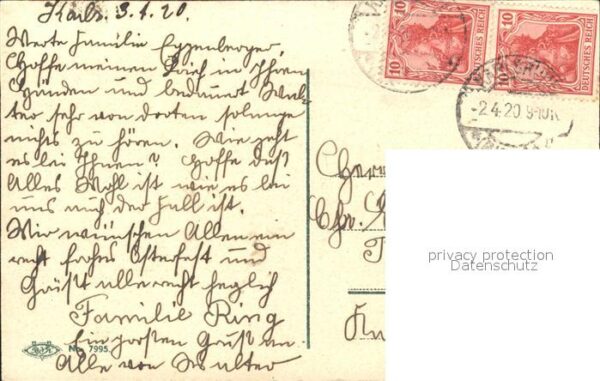 Karls. 3.4.20.
Werte Familie Eggenberger,
Hoffe meinen Brief in Ihren
Händen und bedauert Wal-
ter sehr von dorten solange
nichts zu hören. Wie geht
es bei Ihnen? Hoffe daß
Alles Wohl ist wie es bei
uns auch der Fall ist.
Wir wünschen Allen ein
recht frohes Osterfest und
Grüßt alle recht herzlich
Familie Ring
Ein großen Gruß an
Alle von Walter
No. 7995
10 DEUTSCHES REICH 10
10 DEUTSCHES REICH 10
-2.4.20.9-10
Herrn
Chr.
privacy protection
Datenschutz